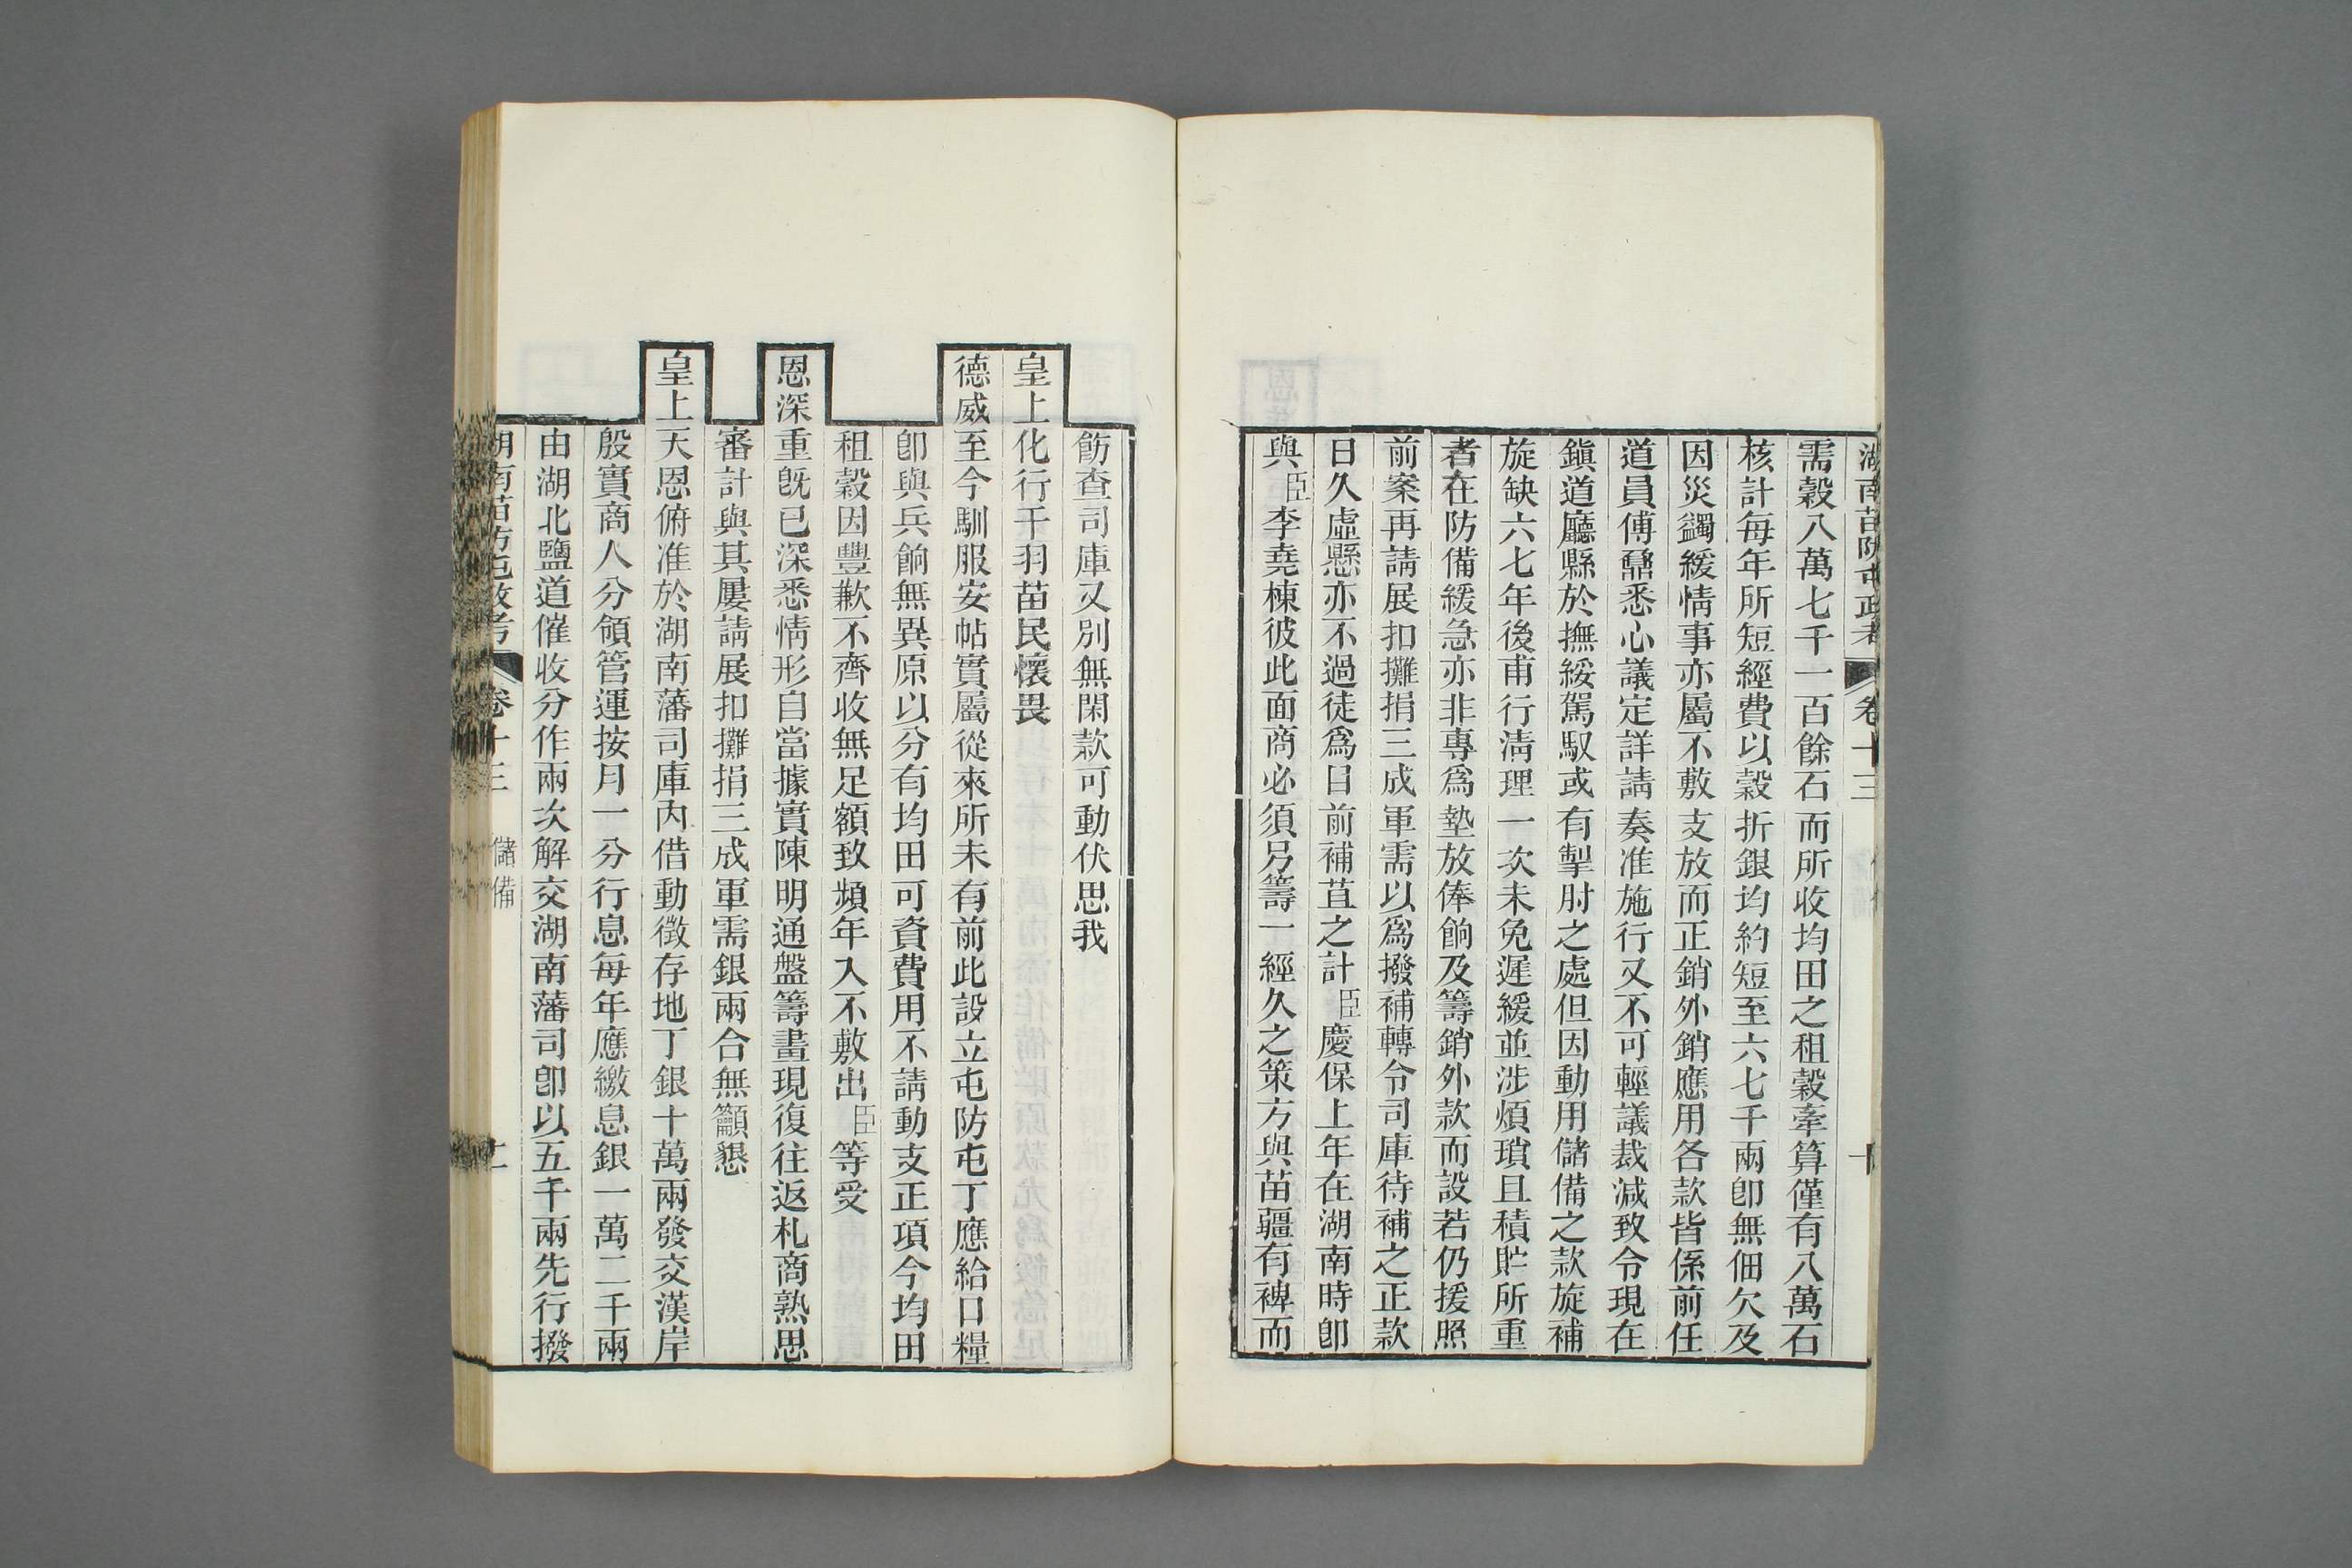 湖南苗防屯政考 卷十三
需穀八萬七千一百餘石而所收均田之租穀牽算僅有八萬石
核計每年所短經費以穀折銀均約短至六七千兩卽無佃欠及
因災蠲緩情事亦屬不敷支放而正銷外銷應用各款皆係前任
道員傅鼐悉心議定詳請奏准施行又不可輕議裁減致令現在
鎭道廳縣於撫綏駕馭或有掣肘之處但因動用儲備之款旋補
旋缺六七年後甫行淸理一次未免遲緩並涉煩瑣且積貯所重
者在防備緩急亦非專爲墊放俸餉及籌銷外款而設若仍援照
前案再請展扣攤捐三成軍需以爲撥補轉令司庫待補之正款
日久虛懸亦不過徒爲目前補苴之計臣慶保上年在湖南時卽
與臣李堯棟彼此面商必須另籌一經久之策方與苗疆有裨而
飭查司庫又別無閑款可動伏思我
皇上化行干羽苗民懷畏
德威至今馴服安帖實屬從來所未有前此設立屯防屯丁應給口糧
卽與兵餉無異原以分有均田可資費用不請動支正項今均田
租穀因豐歉不齊收無足額致頻年入不敷出臣等受
恩深重旣已深悉情形自當據實陳明通盤籌畫現復往返札商熟思
審計與其屢請展扣攤捐三成軍需銀兩合無籲懇
皇上天恩俯准於湖南藩司庫內借動徵存地丁銀十萬兩發交漢岸
殷實商人分領管運按月一分行息每年應繳息銀一萬二千兩
由湖北鹽道催收分作兩次解交湖南藩司卽以五千兩先行撥
湖南苗防屯政考 卷十三 儲備